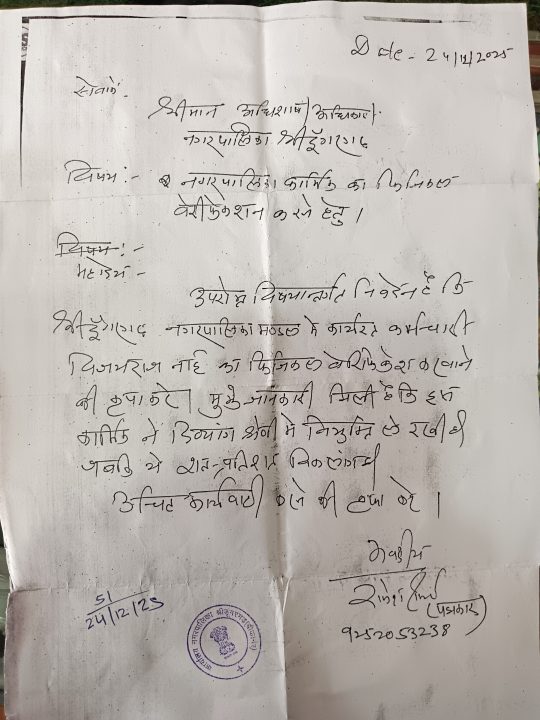 Date - 24/12/2025
सेवामें
श्रीमान अधिशाषी अधिकारी
नगरपालिका श्रीडूँगरगढ़
विषय :- नगरपालिका कार्मिक का फिजिकल
वेरीफिकेशन करने हेतु ।
विषय :-
महोदय -
उपरोक्त विषयान्तर्गत निवेदन है कि
श्रीडूँगरगढ नगरपालिका मण्डल मे कार्यरत कर्मचारी
विजयराज नाई का फिजिकल वेरिफिकेशन करवाने
की कृपा करे । मुझे जानकारी मिली है कि इस
कार्मिक ने दिव्यांग श्रेणी मे नियुक्ति ले रखी है
जबकि ये शत-प्रतिशत विकलांग
उचित कार्यवाही करने की कृपा करे ।
भवदीय
(पत्रकार)
9252053238
51
24/12/25
कार्यालय नगरपालिका